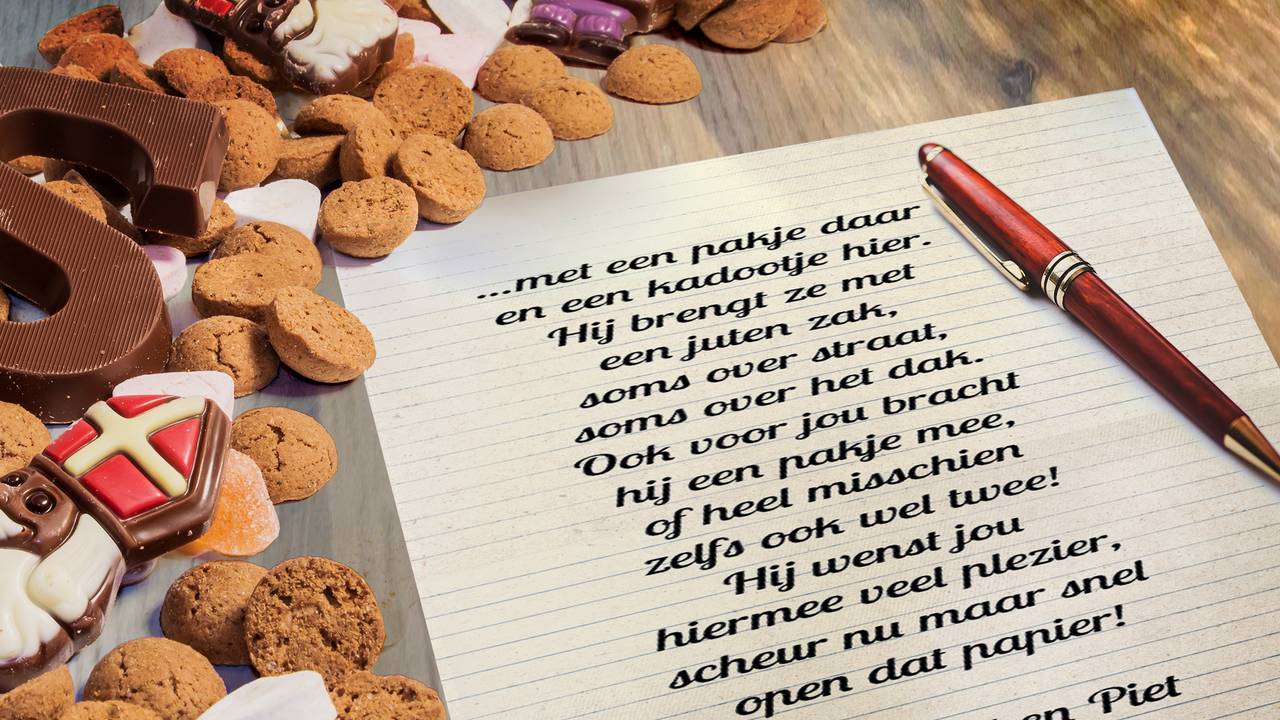 ...met een pakje daar
en een kadootje hier.
Hij brengt ze met
een juten zak,
soms over straat,
soms over het dak.
Ook voor jou bracht
hij een pakje mee,
of heel misschien
zelfs ook wel twee!
Hij wenst jou
hiermee veel plezier,
scheur nu maar snel
open dat papier!
en Piet